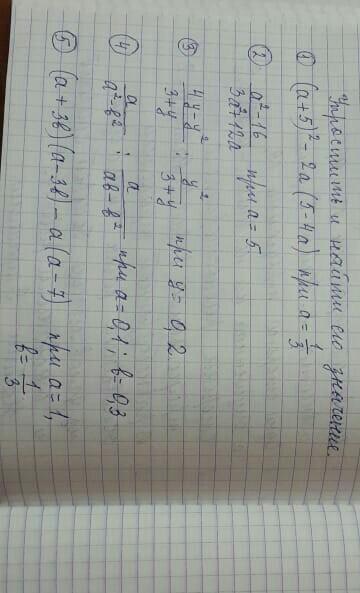 Упростить и найти его значение.
① (a+5)² - 2a(5-4a) при a = 1/3
② (a²-16)/(3a²+12a) при a = 5.
③ (4y-y²)/(3+y) : y²/(3+y) при y = 0,2
④ a/(a²-b²) : a/(ab-b²) при a = 0,1; b = 0,3
⑤ (a+3b)(a-3b) - a(a-7) при a = 1,
b = 1/3